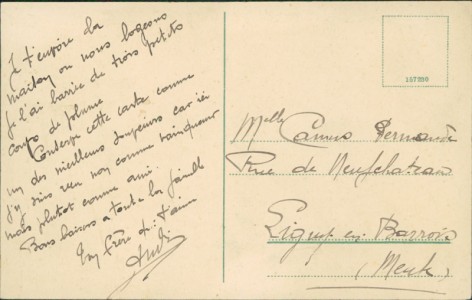 Je t'envoie la
maison ou nous logeons
Je l'ai barrée de trois petits
coups de plume
Conserve cette carte comme
un des meilleurs souvenirs car ici
j'y suis non comme vainqueur
mais plutot comme ami.
Bons baisers a toute la famille
Ton frère qui t'aime
André
167990
Melle Camus Fernande
Rue de Neufchateau
Ligny en Barrois
(Meuse)